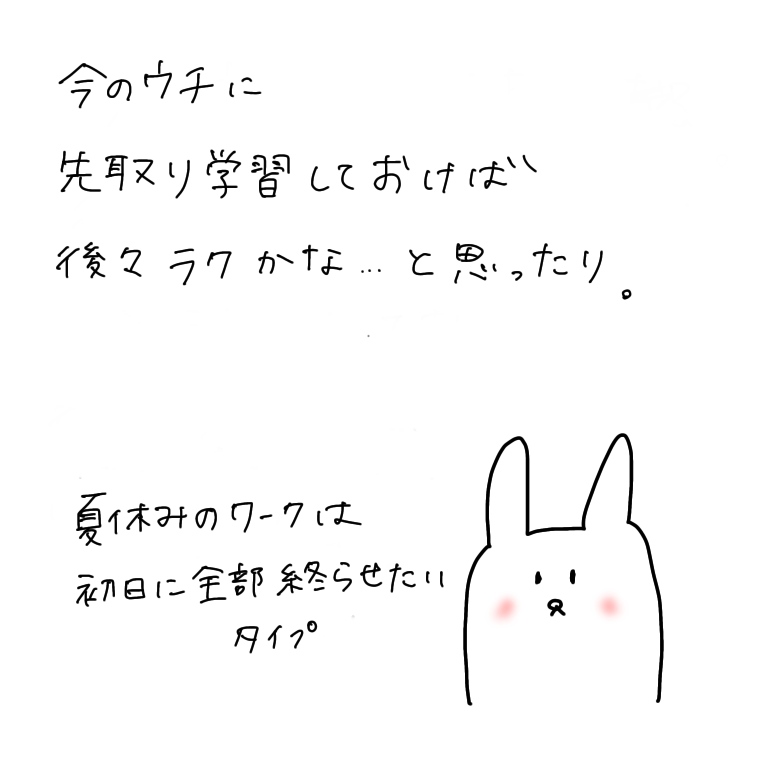 今のウチに
先取り学習しておけば
後々ラクかな…と思ったり。
夏休みのワークは
初日に全部終らせたい
タイプ